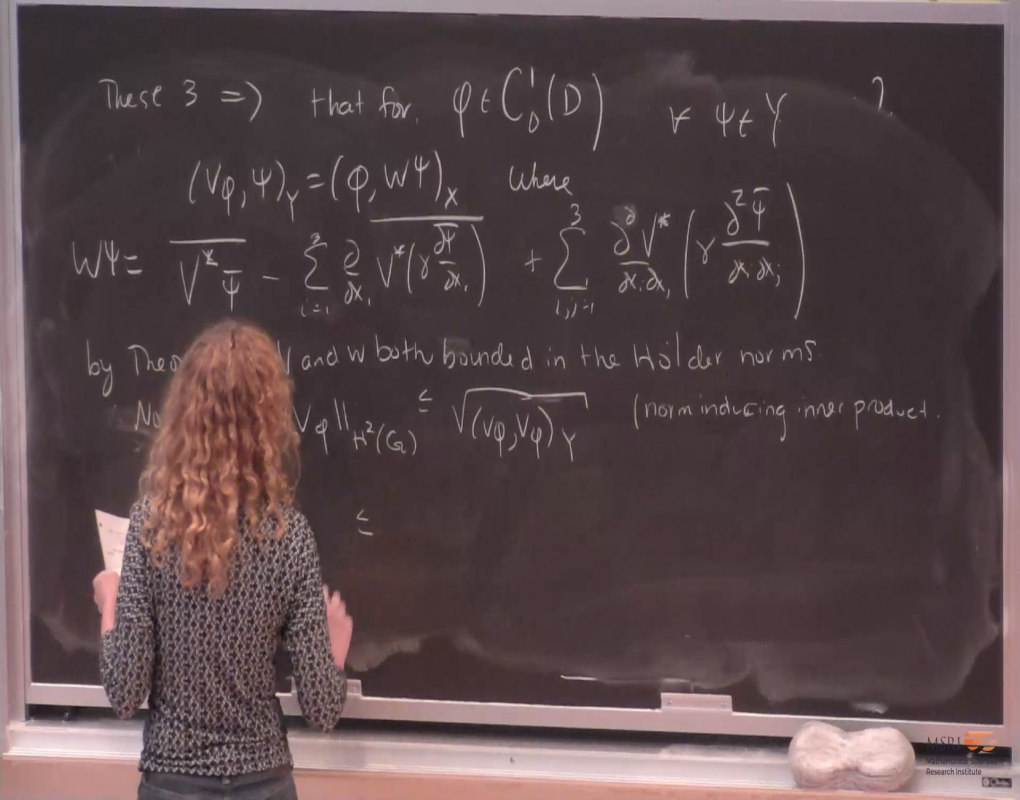 These 3 => that for φ ∈ C₀¹(D) ∀ ψ ∈ Y
(Vφ, ψ)_Y = (φ, Wψ)_X where
Wψ = \overline{V^* \overline{ψ}} - \overline{\sum_{i=1}^{3} \frac{∂}{∂x_i} V^*(γ \frac{∂\overline{ψ}}{∂x_i})} + \sum_{i,j=1}^{3} \frac{∂^2 V^*}{∂x_i ∂x_j} (γ \frac{∂^2 \overline{ψ}}{∂x_i ∂x_j})
by and W both bounded in the Hölder norms.
Vφ||_{H²(G)} ≤ \sqrt{(Vφ, Vφ)_Y} (norm inducing inner product.
≤
MSRI
Mathematical Sciences
Research Institute